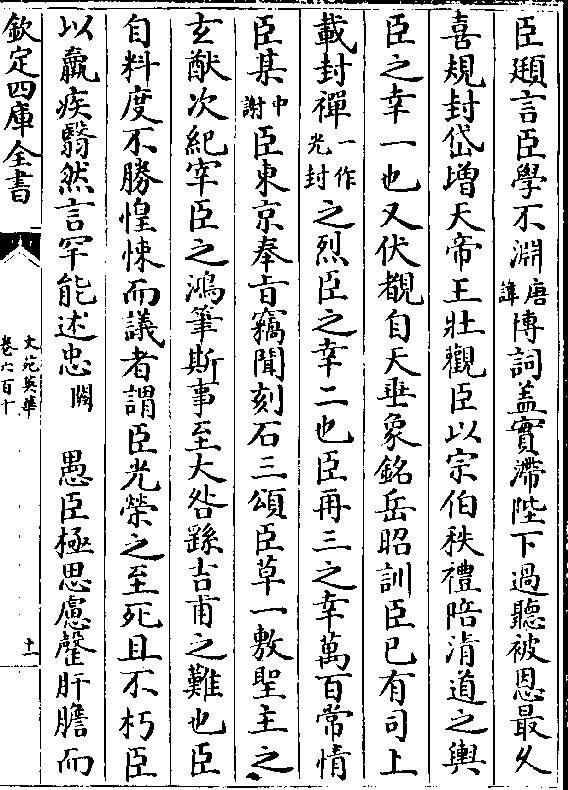 臣頲言臣學不淵唐諱博詞盖實滯陛下過聽被恩最乆
喜規封岱增天帝王壯觀臣以宗伯秩禮陪清道之輿
臣之幸一也又伏覩自天垂象銘岳昭訓臣已有司上
載封禪一作光封之烈臣之幸二也臣再三之幸萬百常情
臣某中謝臣東京奉旨竊聞刻石三頌臣草一敷聖主之
玄猷次紀宰臣之鴻筆斯事至大咎繇吉甫之難也臣
自料度不勝惶悚而議者謂臣光榮之至死且不朽臣
以羸疾翳然言罕能述忠闕 愚臣極思慮罄肝膽而
欽定四庫全書
文苑英華
卷六百十
十一